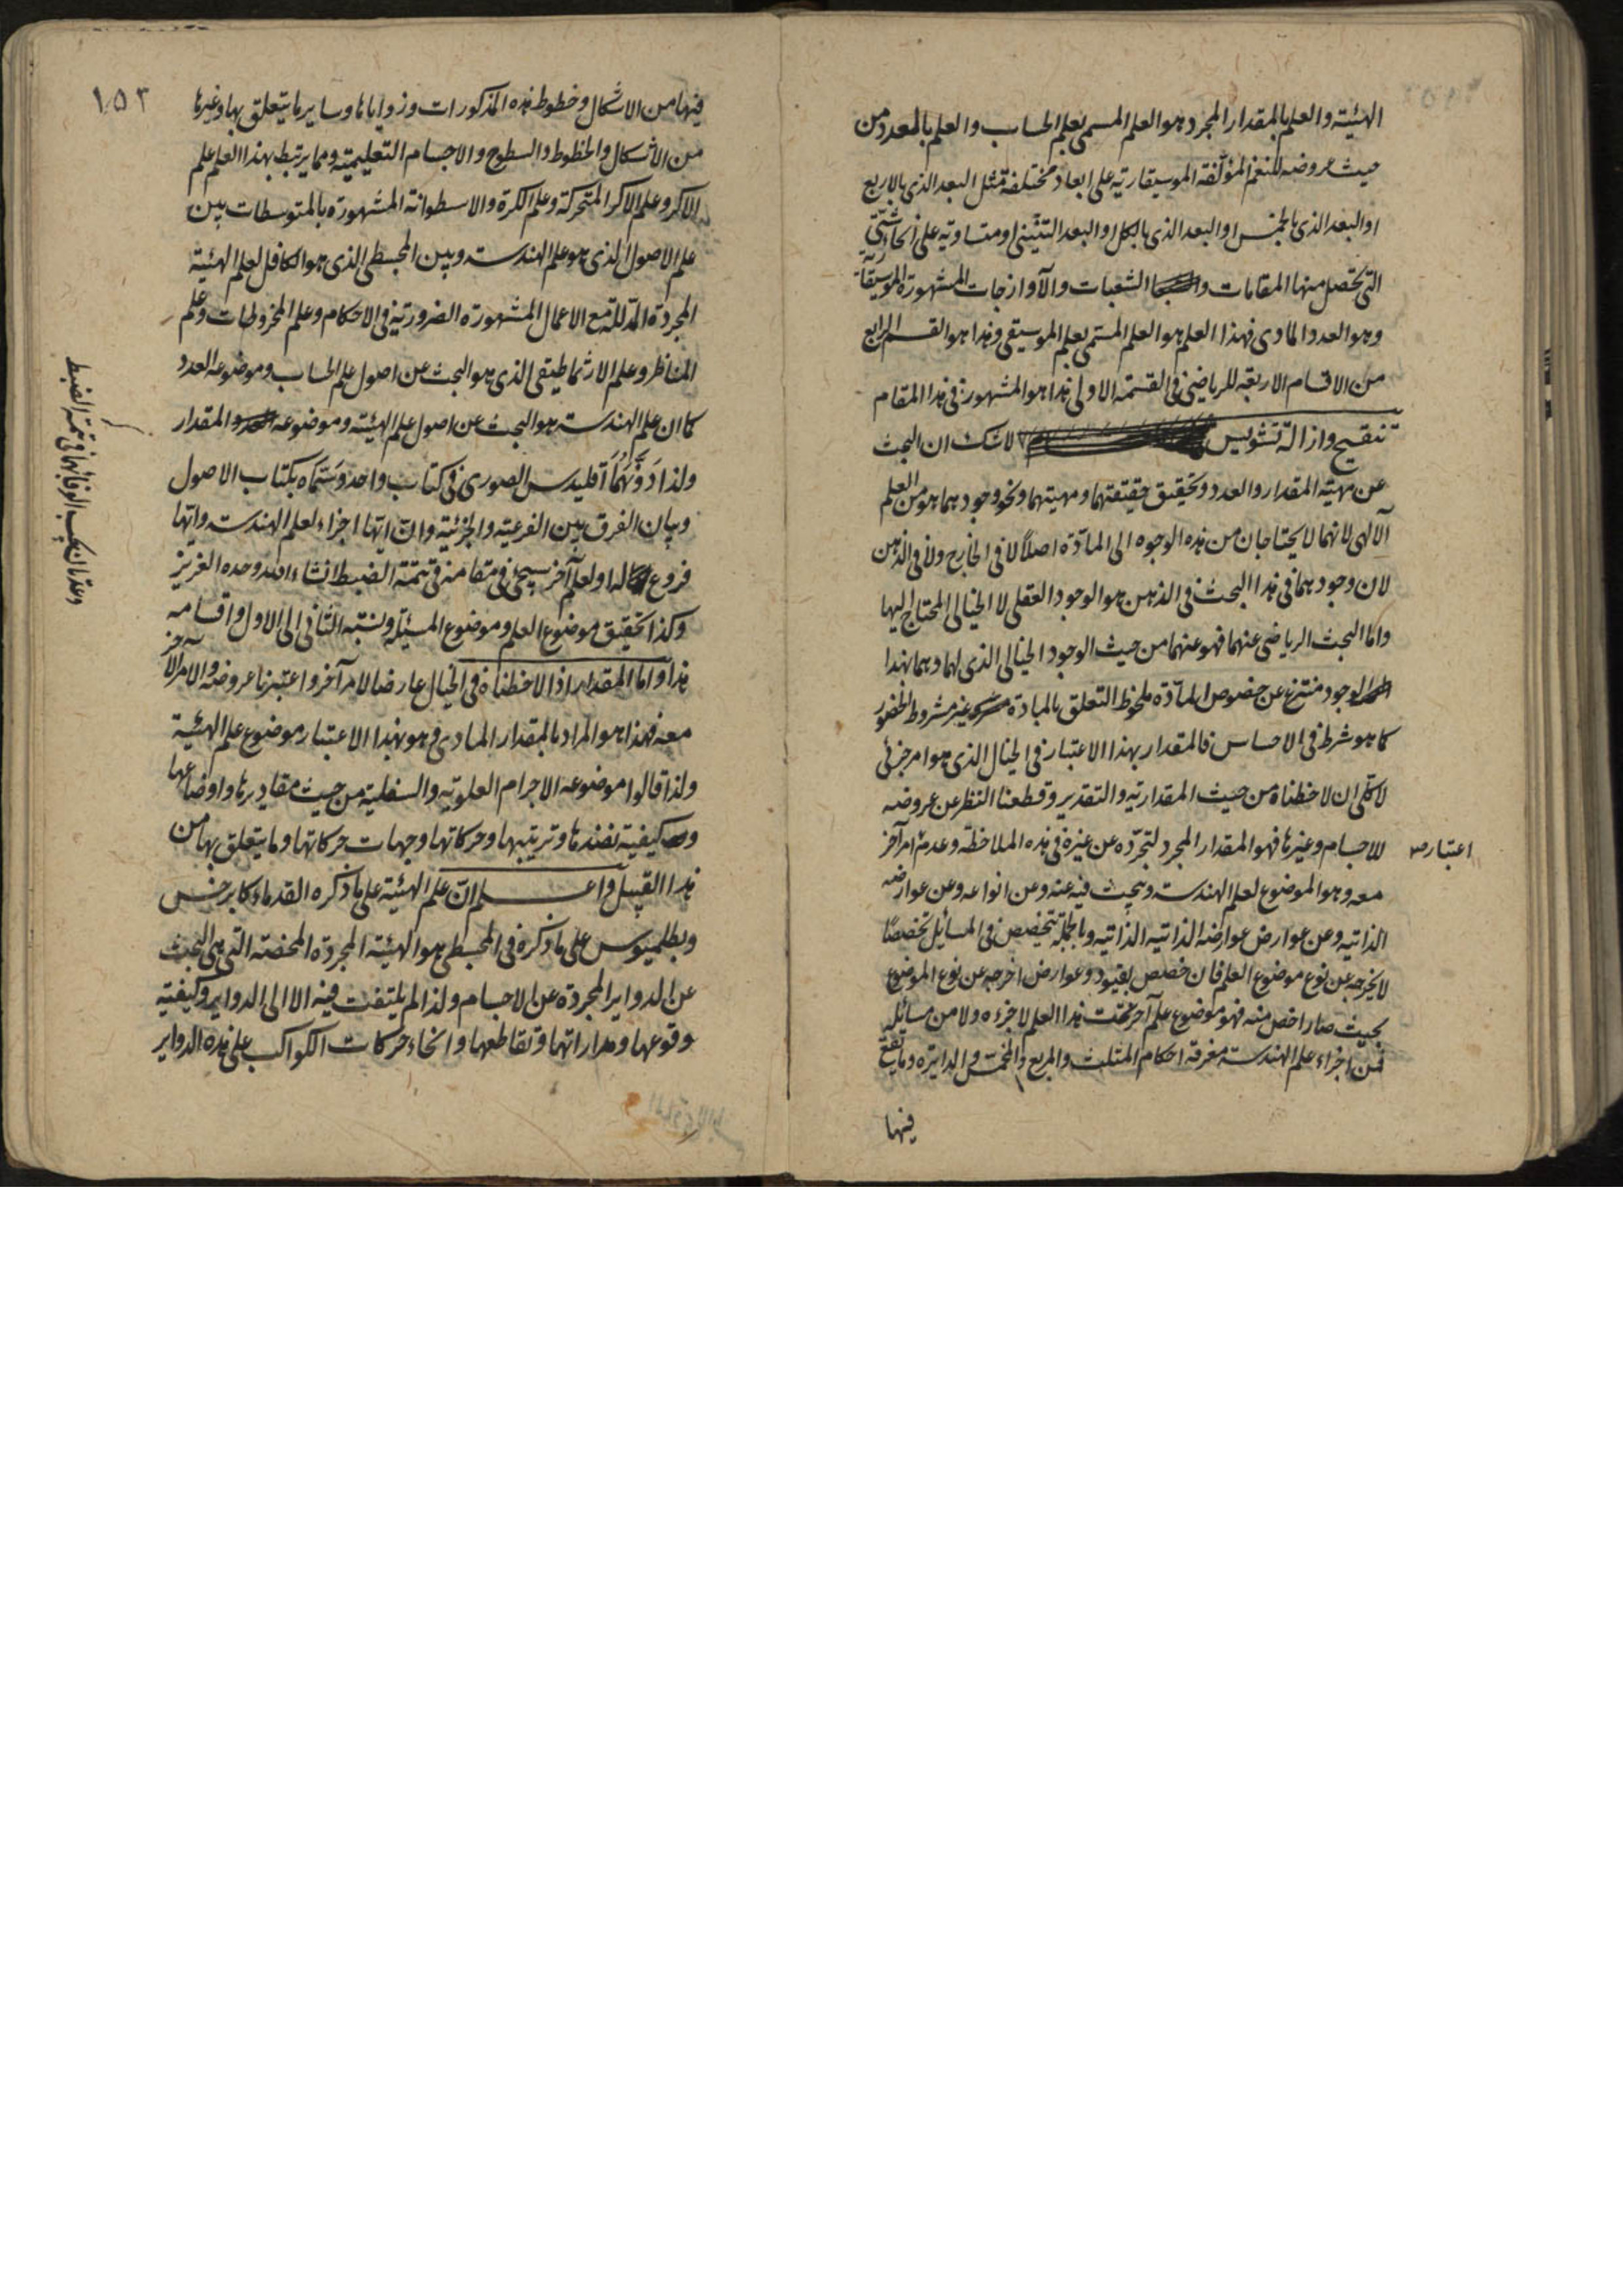 الهيئة والعلم بالمقدار المجرد هو العلم المسمى بعلم الحساب والعلم بالمعدود من
حيث عروضه للنغم المؤلفة الموسيقارية على ابعاد مختلفة مثل البعد الذى بالاربع
او البعد الذى بالخمس او البعد الذى بالكل او البعد الثنينى او متساوية على انحاء شتى
التى تحصل منها المقامات والشعبات والآوازجات المشهورة الموسيقارية
وهو العدد المادى فهذا العلم هو العلم المسمى بعلم الموسيقى وهذا هو القسم الرابع
من الاقسام الاربعة للرياضى فى القسمة الاولى هذا هو المشهور فى هذا المقام
تنقيح وازالة تشويس لا شك ان البحث
عن مهية المقدار والعدد وتحقيق حقيقتهما ومهيتهما ونحو وجودهما هو من العلم
الآلهى لانهما لا يحتاجان من هذه الوجوه الى المادة اصلاً لا فى الخارج ولا فى الذهن
لان وجودهما فى هذا البحث فى الذهن هو الوجود العقلى لا الخيالى المحتاج اليها
واما البحث الرياضى عنهما فهو عنهما من حيث الوجود الخيالى الذى لهما وهما بهذا
الوجود منتزع عن خصوص المادة ملحوظ التعلق بالمادة غير مشروط الحضور
كما هو شرط فى الاحساس فالمقدار بهذا الاعتبار فى الخيال الذى هو امر جزئى
لا كلى ان لاحظناه من حيث المقدارية والتقدير وقطعنا النظر عن عروضه
للاجسام وغيرها فهو المقدار المجرد لتجرده عن غيره فى هذه الملاحظة وعدم امر آخر
اعتبار صح
معه وهو الموضوع لعلم الهندسة ويبحث فيه عنه وعن انواعه وعن عوارضه
الذاتية وعن عوارض عوارضه الذاتية الذاتية وبالجملة يتخصص فى المسائل تخصصًا
لا يخرجه عن نوع موضوع العلم فان خصص بقيود وعوارض اخرجه عن نوع الموضوع
بحيث صار اخص منه فهو موضوع علم آخر تحت هذا العلم لا جزءه ولا من مسائله
فمن اجزاء علم الهندسة معرفة احكام المثلث والمربع والمخمس والدايرة وما يقع
فيها
١٥٣
فيها من الاشكال وخطوط هذه المذكورات وزواياها وساير ما يتعلق بها وغيرها
من الاشكال والخطوط والسطوح والاجسام التعليمية ومما يرتبط بهذا العلم علم
الاكر وعلم الاكر المتحركة وعلم الكرة والاسطوانة المشهورة بالمتوسطات بين
علم الاصول الذى هو علم الهندسة وبين المجسطى الذى هو الكافل لعلم الهيئة
المجردة المدللة مع الاعمال المشهورة الضرورية فى الاحكام وعلم المخروطات وعلم
المناظر وعلم الارثماطيقى الذى هو البحث عن اصول علم الحساب وموضوعه العدد
كما ان علم الهندسة هو البحث عن اصول علم الهيئة وموضوعه المقدار
ولذا دَوَّنَهُمَا اقليدس الصورى فى كتاب واحد وسَمّاه بكتاب الاصول
وبيان الفرق بين الفرعية والجزئية وان ايها اجزاء لعلم الهندسة وايها
فروع له او لعلم آخر سيجئ فى مقامه فى تتمة الضبط انشاء الله وحده العزيز
وكذا تحقيق موضوع العلم وموضوع المسئلة ونسبة الثانى الى الاول واقسامه
هذا واما المقدار اذا لاحظناه فى الخيال عارضا لامر آخر واعتبرنا عروضه والامر الآخر
معه فهذا هو المراد بالمقدار المادى فهو بهذا الاعتبار موضوع علم الهيئة
ولذا قالوا موضوعه الاجرام العلوية والسفلية من حيث مقاديرها واوضاعها
وكيفية نضدها وترتيبها وحركاتها وجهات حركاتها وما يتعلق بها من
هذا القبيل واعلم ان علم الهيئة على ما ذكره القدماء كابرخس
وبطلميوس على ما ذكره فى المجسطى هو الهيئة المجردة المحضة التى هى البحث
عن الدواير المجردة عن الاجسام ولذا لم يلتفت فيه الا الى الدواير وكيفية
وقوعها ومداراتها وتقاطعها وانحاء حركات الكواكب على هذه الدواير